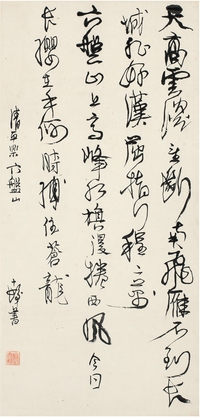 天高雲淡望斷南飛雁不到長
城非好漢屈指行程二萬
六盤山上高峰紅旗漫捲西風今日
長纓在手何時縛住蒼龍
清平樂六盤山
書